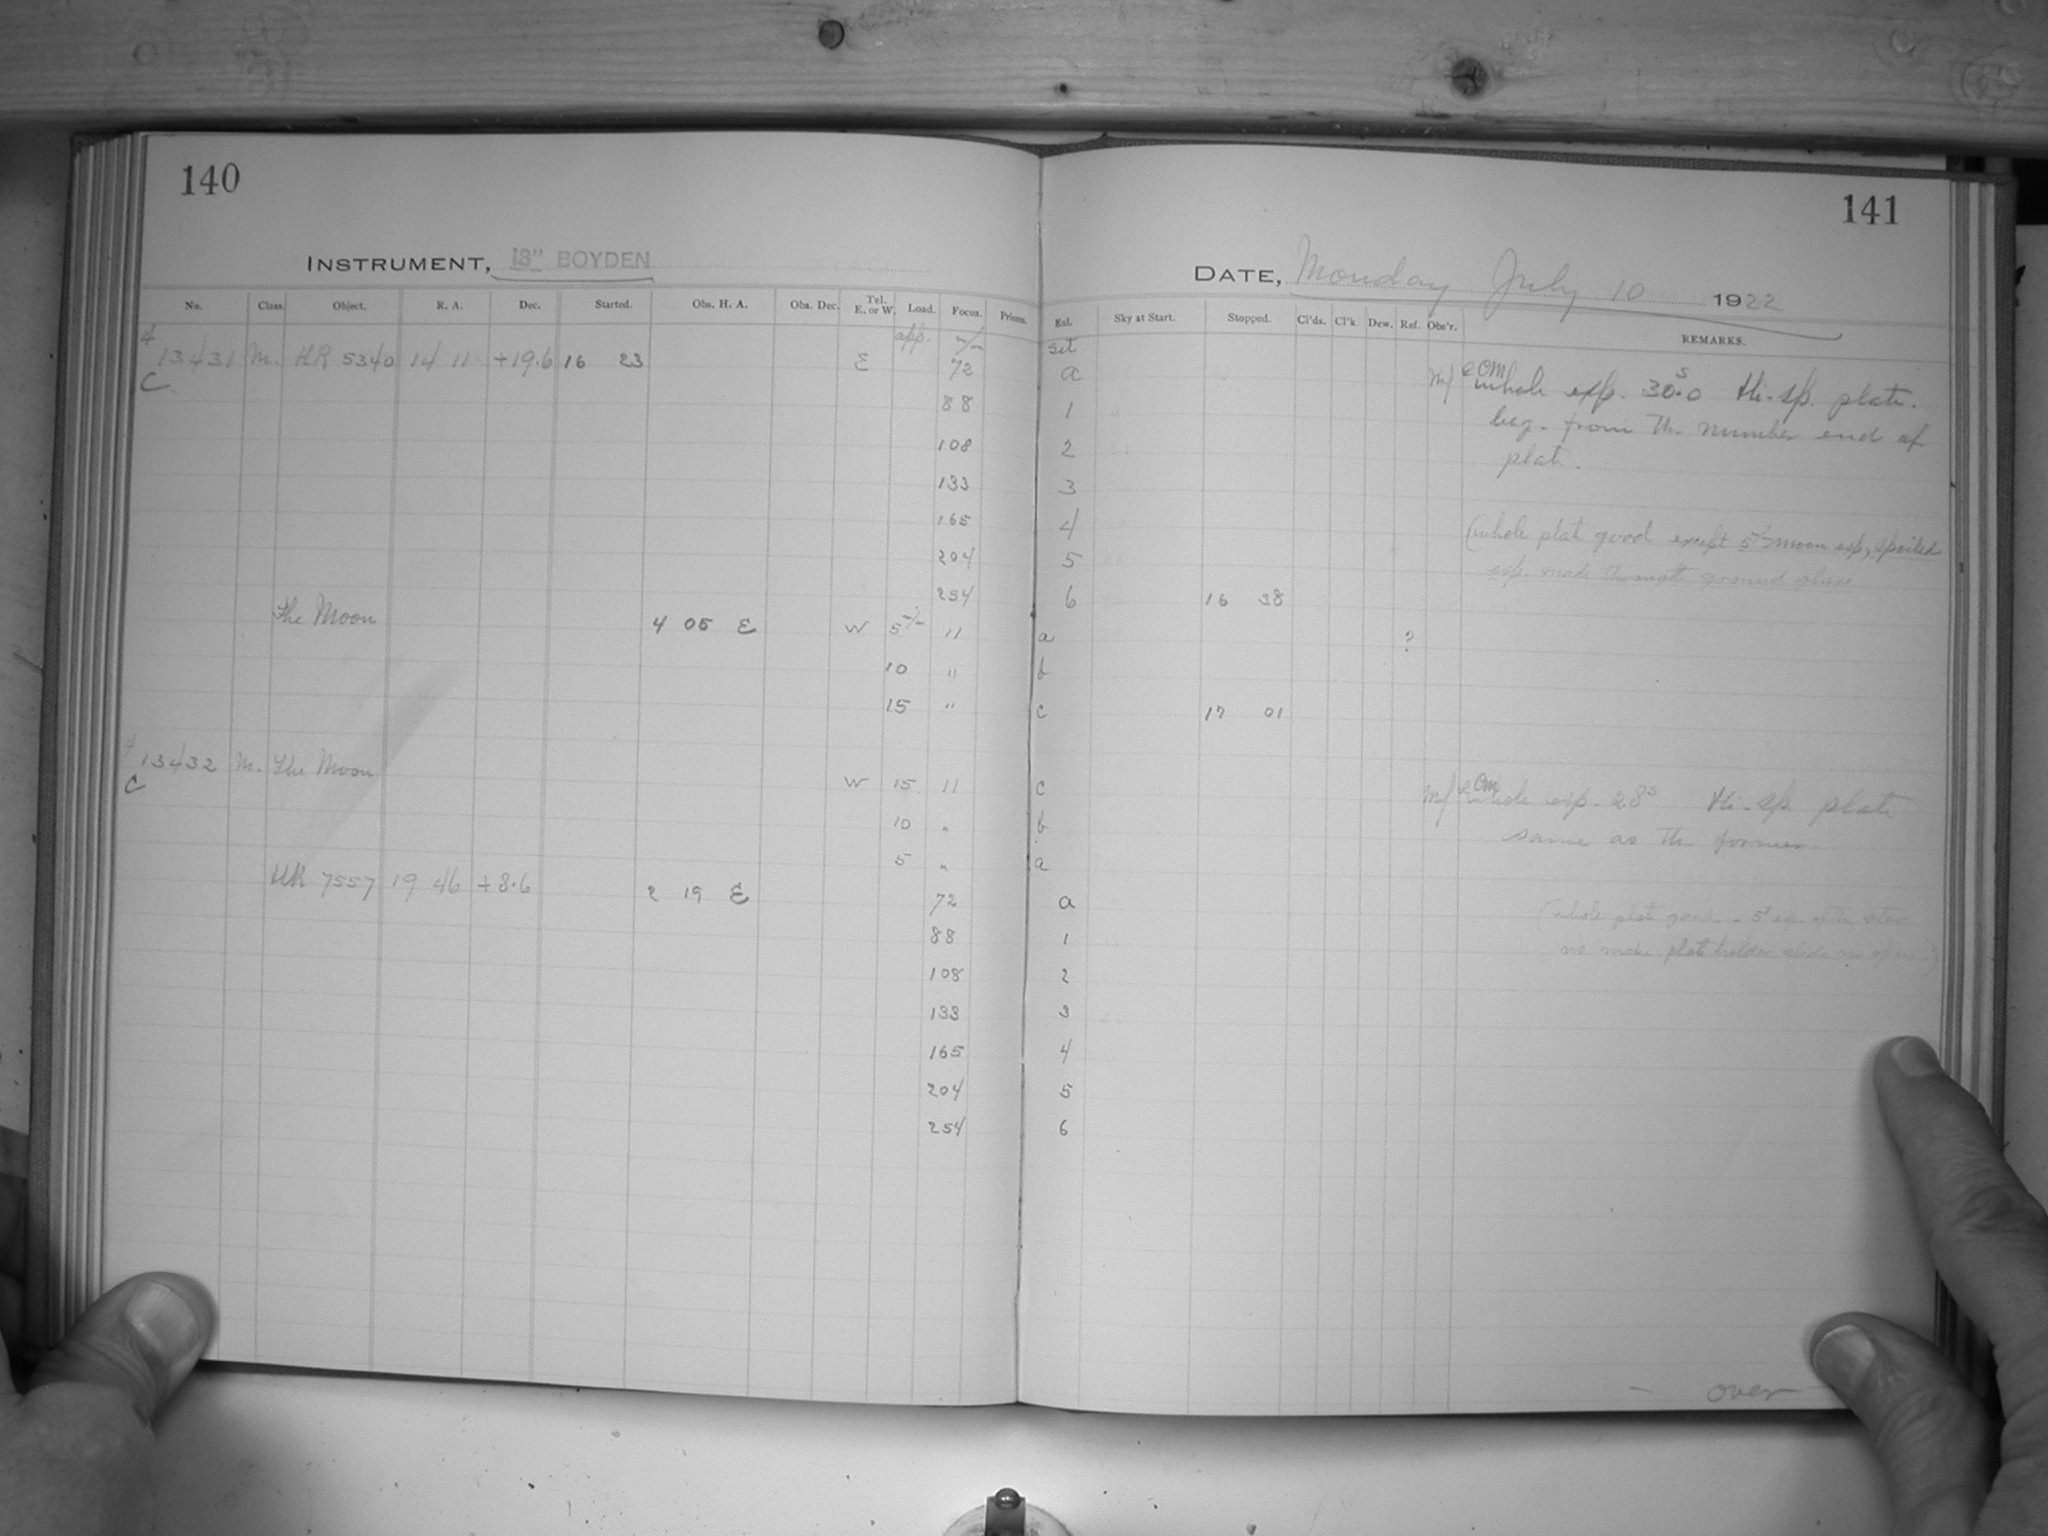 140
INSTRUMENT, 13" BOYDEN
No. Class. Object. R. A. Dec. Started. Obs. H. A. Obs. Dec. Tel. E. or W. Load. Focus. Prisms.
app. m/m
4
13431 M. HR 5340 14 11 +19.6 16 23 E 72
C
88
108
133
165
204
254
The Moon 4 05 E W 5 m/m 11
10 "
15 "
4
13432 M. The Moon W 15 11
C
10 "
5 "
HR 7557 19 46 +8.6 2 19 E 72
88
108
133
165
204
254
141
DATE, Monday July 10 1922
Exl. Sky at Start. Stopped. Cl'ds. Cl'k. Dew. Ref. Obs'r. REMARKS.
set
a M whole exp. 30s.0 Hi-sp. plate.
1 beg. from the number end of
2 plate.
3
4 (whole plate good except 5 m/m moon exp. spoiled
5 exp. made through ground glass
6 16 38
a ?
b
c 17 01
c M whole exp. 28s Hi-sp plate
b same as the former.
a
a (whole plate good - 5s exp. of the star
1 no make plate holder slide no open.)
2
3
4
5
6
- over -